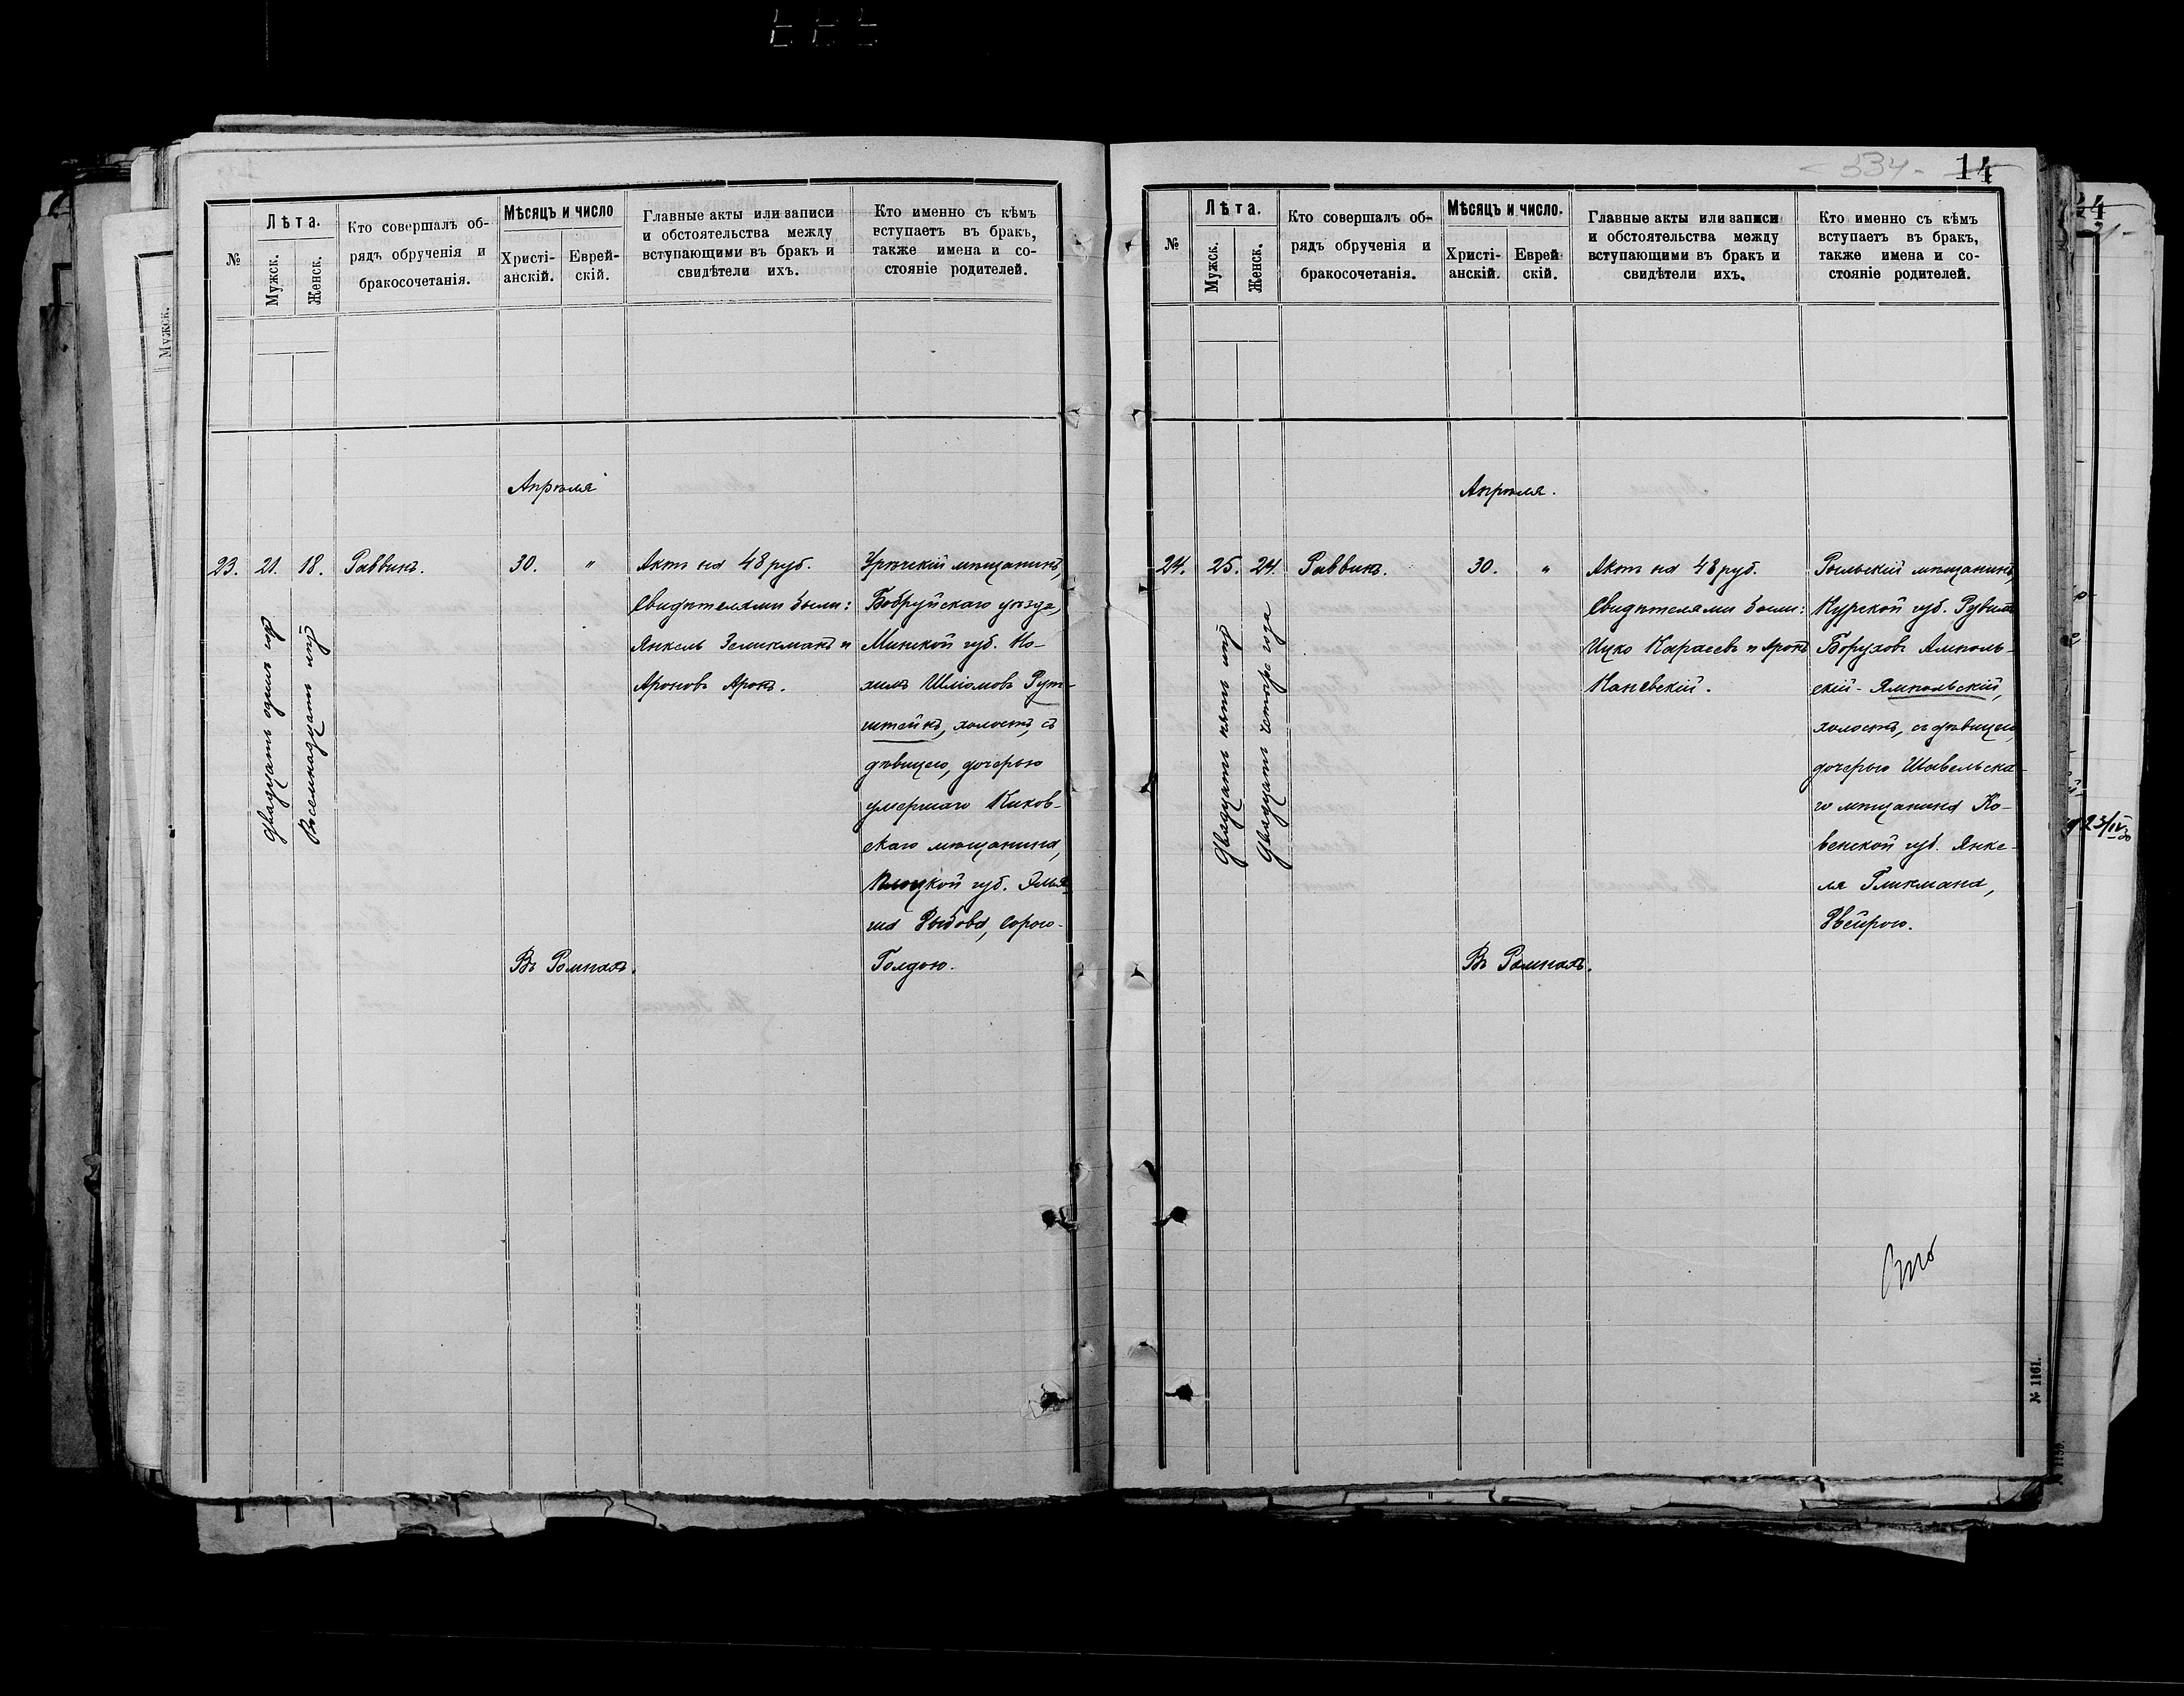 №
Лѣта.
Мужск.
Женск.
Кто совершалъ об-
рядъ обрученія и
бракосочетанія.
Мѣсяцъ и число
Христі-
анскій.
Еврей-
скій.
Главные акты или записи
и обстоятельства между
вступающими въ бракъ и
свидѣтели ихъ.
Кто именно съ кѣмъ
вступаетъ въ бракъ,
также имена и со-
стояніе родителей.
Апрѣля
23.
21.
18.
Двадцать одинъ
Восемнадцать лѣтъ
Раввинъ.
30.
"
Въ Ромнахъ.
Актъ на 48 руб.
Свидѣтелями были:
Янкель Зеликманъ и
Ароновъ Аронъ.
Урѣчскій мѣщанинъ,
Бобруйскаго уѣзда,
Минской губ. Но-
химъ Шліомовъ Рут-
штейнъ, холостъ, съ
дѣвицею, дочерью
умершаго
скаго мѣщанина,
губ.
Сорою-
Голдою.
334-
14
№
Лѣта.
Мужск.
Женск.
Кто совершалъ об-
рядъ обрученія и
бракосочетанія.
Мѣсяцъ и число.
Христі-
анскій.
Еврей
скій.
Главные акты или записи
и обстоятельства между
вступающими въ бракъ и
свидѣтели ихъ.
Кто именно съ кѣмъ
вступаетъ въ бракъ,
также имена и со-
стояніе родителей.
Апрѣля.
24.
25.
24.
Двадцать пять лѣтъ
Двадцать четыре года
Раввинъ.
30.
"
Въ Ромнахъ.
Актъ на 48 руб.
Свидѣтелями были:
Ицко Карасевъ и Аронъ
Каневскій.
Рыльскій мѣщанинъ
Курской губ. Рувинъ
Боруховъ Амполь-
скій-Ямпольскій,
холостъ, съ дѣвицею,
дочерью Шавельска-
го мѣщанина Ко-
венской губ. Янке-
ля Гликмана,
Двейрою.
№ 1161.
Мужск.
24